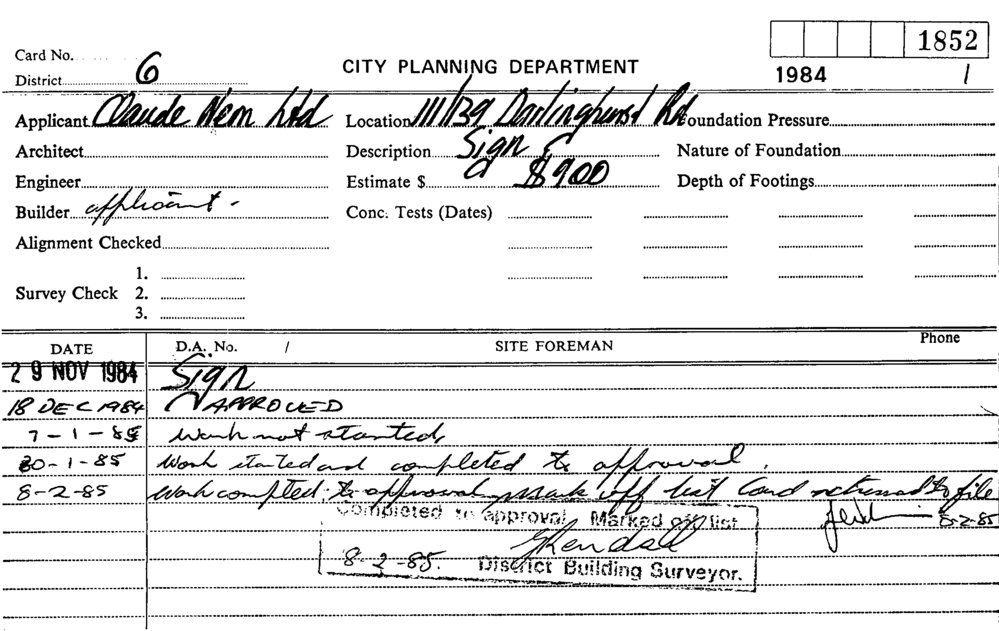 1852
Card No.
District 6
CITY PLANNING DEPARTMENT
1984 /
Applicant Claude Neon Ltd Location 111/139 Darlinghurst Rd Foundation Pressure
Architect Description Sign Nature of Foundation
Engineer Estimate $ $900 Depth of Footings
Builder applicant - Conc. Tests (Dates)
Alignment Checked
1.
Survey Check 2.
3.
DATE D.A. No. / SITE FOREMAN Phone
29 NOV 1984 Sign
18 DEC 1984 APPROVED
7-1-85 Work not started,
30-1-85 Work started and completed to approval.
8-2-85 Work compted to approval, mark off list Card returned to file
Completed to approval. Marked off list
8-2-85
8-2-85. District Building Surveyor.